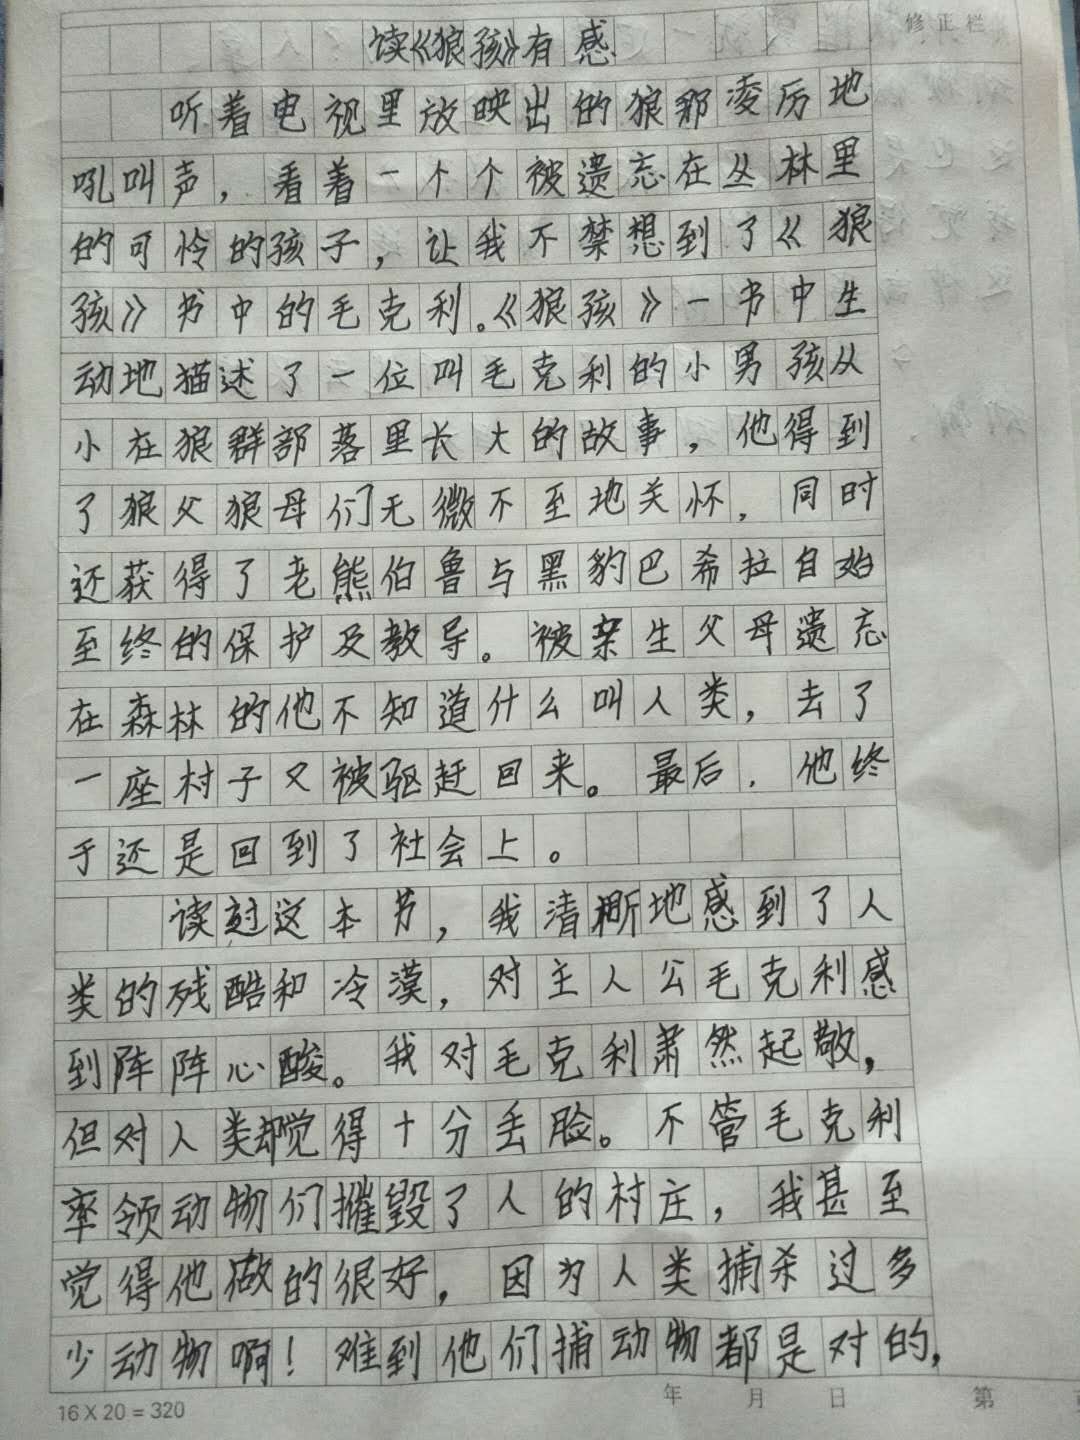 修正栏
读《狼孩》有感
听着电视里放映出的狼那凌厉地
吼叫声，看着一个个被遗忘在丛林里
的可怜的孩子，让我不禁想到了《狼
孩》书中的毛克利。《狼孩》一书中生
动地描述了一位叫毛克利的小男孩从
小在狼群部落里长大的故事，他得到
了狼父狼母们无微不至地关怀，同时
还获得了老熊伯鲁与黑豹巴希拉自始
至终的保护及教导。被亲生父母遗忘
在森林的他不知道什么叫人类，去了
一座村子又被驱赶回来。最后，他终
于还是回到了社会上。
读过这本书，我清晰地感到了人
类的残酷和冷漠，对主人公毛克利感
到阵阵心酸。我对毛克利肃然起敬，
但对人类却觉得十分丢脸。不管毛克利
率领动物们摧毁了人的村庄，我甚至
觉得他做的很好，因为人类捕杀过多
少动物啊！难到他们捕动物都是对的，
16×20=320 年 月 日 第